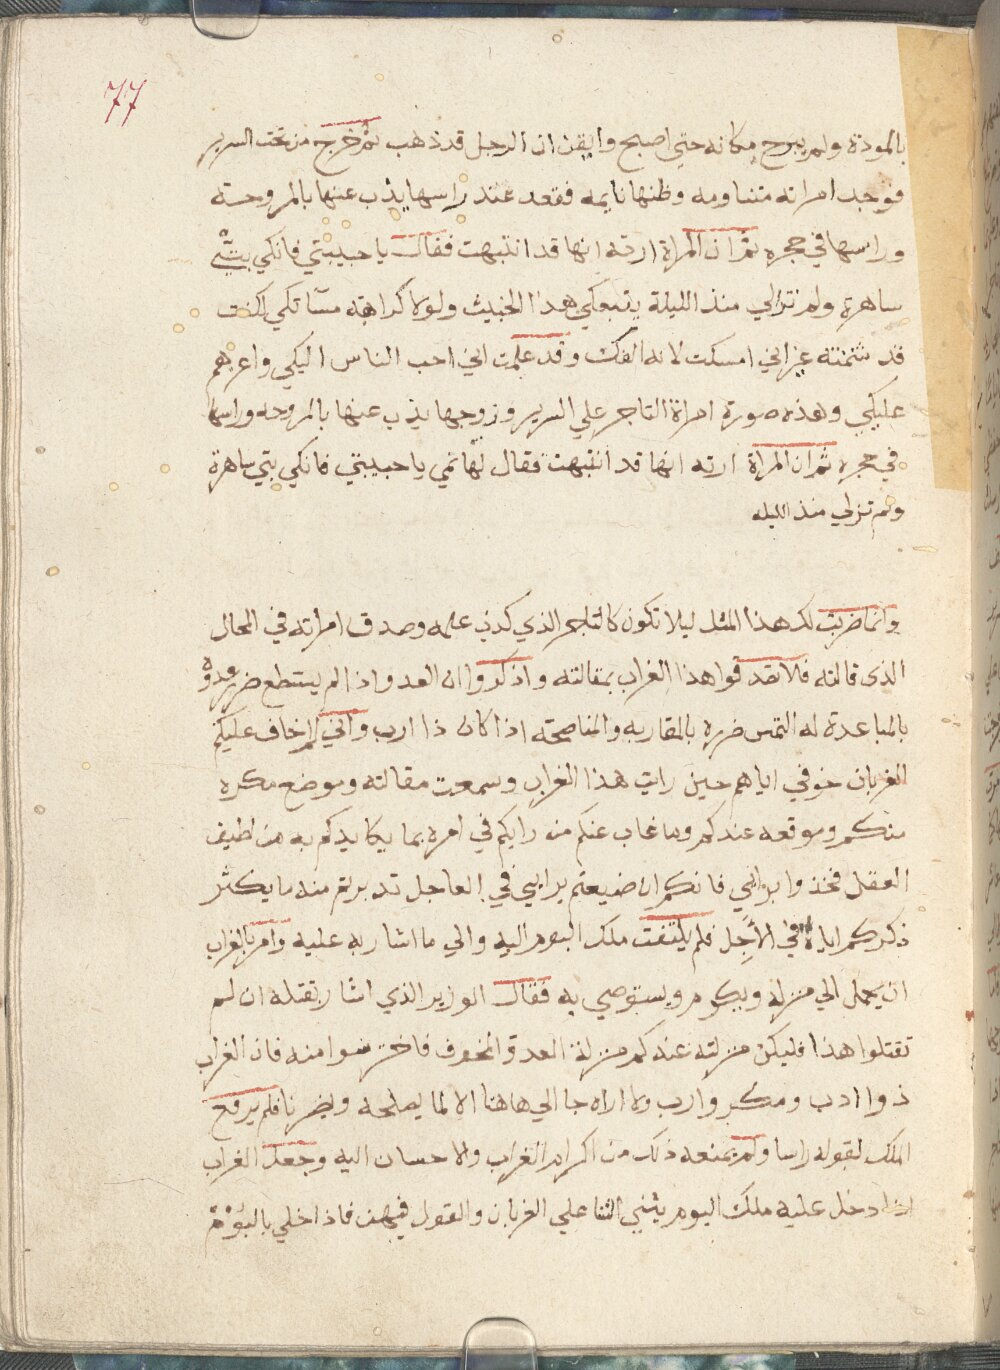 77
بالمودة ولم يبرح مكانه حتي اصبح وايقن ان الرجل قد ذهب ثم خرج من تحت السرير
فوجد امراته متناومه وظنها نايمه فقعد عند راسها يذب عنها بالمروحته
وراسها في حجره ثم ان المراة ارته انها قد انتبهت فقال يا حبيبتي فانكي بتي
ساهرة ولم تزالي منذ الليلة يتبعكي هذا الخبيث ولولا كراهته مساتكي لكنت
قد شتمته غير اني امسكت لانه الفك وقد علمت اني احب الناس اليكي واعزهم
عليكي وهذه صورة امراة التاجر علي السرير وزوجها يذب عنها بالمروحه وراسها
في حجره ثم ان المراة ارته انها قد انتبهت فقال لها نمي يا حبيبتي فانكي بتي ساهرة
ولم تزلي منذ الليله
وانما ضربت لك هذا المثل ليلا تكون كالتاجر الذي كذب علمه وصدق امراته في المحال
الذى قالته فلا تصدقوا هذا الغراب بمقالته واذكروا ان العدو اذا لم يستطع ضرر عدوه
بالمباعدة له التمس ضرره بالمقاربه والمناصحته اذا كان ذا ارب واني لم اخاف عليكم
الغربان خوفي اياهم حين رايت هذا الغراب وسمعت مقالته وموضع مكره
منكم وموقعه عندكم وما غاب عنكم من رايكم في امره بما يكايدكم به من لطيف
العقل فخذوا برايي فانكم ان ضيعتم برايي في العاجل تدبرتم منه ما يكثر
ذكركم اياه في الاجل فلم يلتفت ملك البوم اليه والي ما اشار به عليه وامر بالغراب
ان يحمل الي منزله ويكرم ويستوصي به فقال الوزير الذي اشار بقتله ان لم
تقتلوا هذا فليكن منزلته عندكم منزلة العدو المخوف فاحترسوا منه فان الغراب
ذوا ادب ومكر وارب ولا اراه جا الي هاهنا الا لما يصلحه ويضرنا فلم يرفع
الملك لقوله راسا ولم يمنعه ذلك من اكرام الغراب والاحسان اليه وجعل الغراب
اذا دخل عليه ملك البوم يثني الثنا علي الغربان والقول فيهن فاذا خلي بالبومة